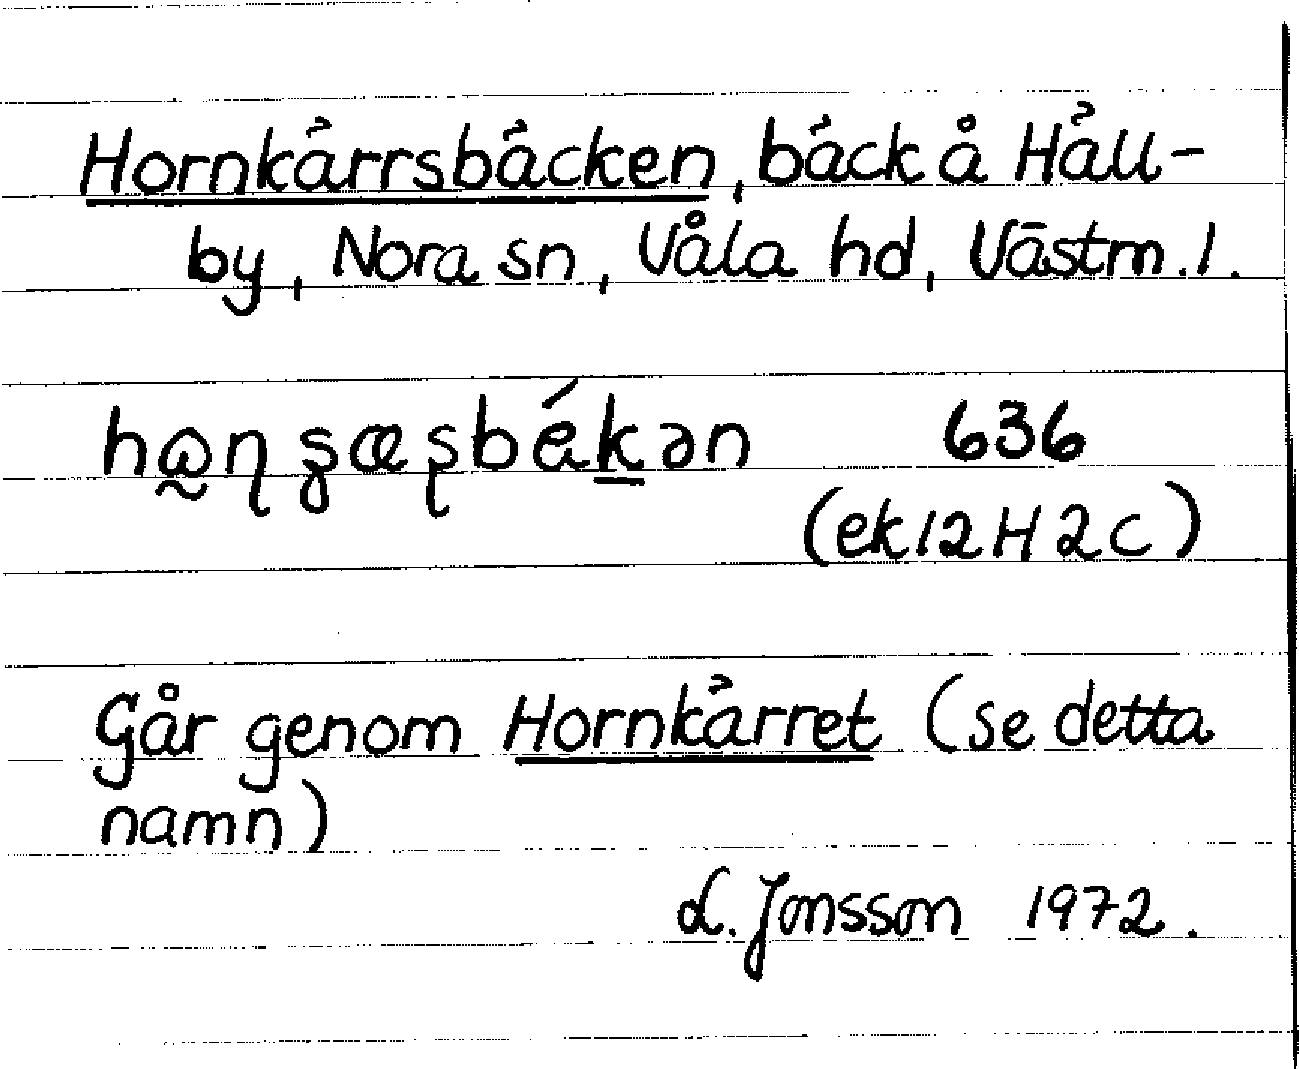 Hornkärrsbäcken, bäck å Häll-
by, Nora sn, Våla hd, Västm. l.
636
(ek 12 H 2 c)
Går genom Hornkärret (se detta
namn)
L. Jonsson 1972.